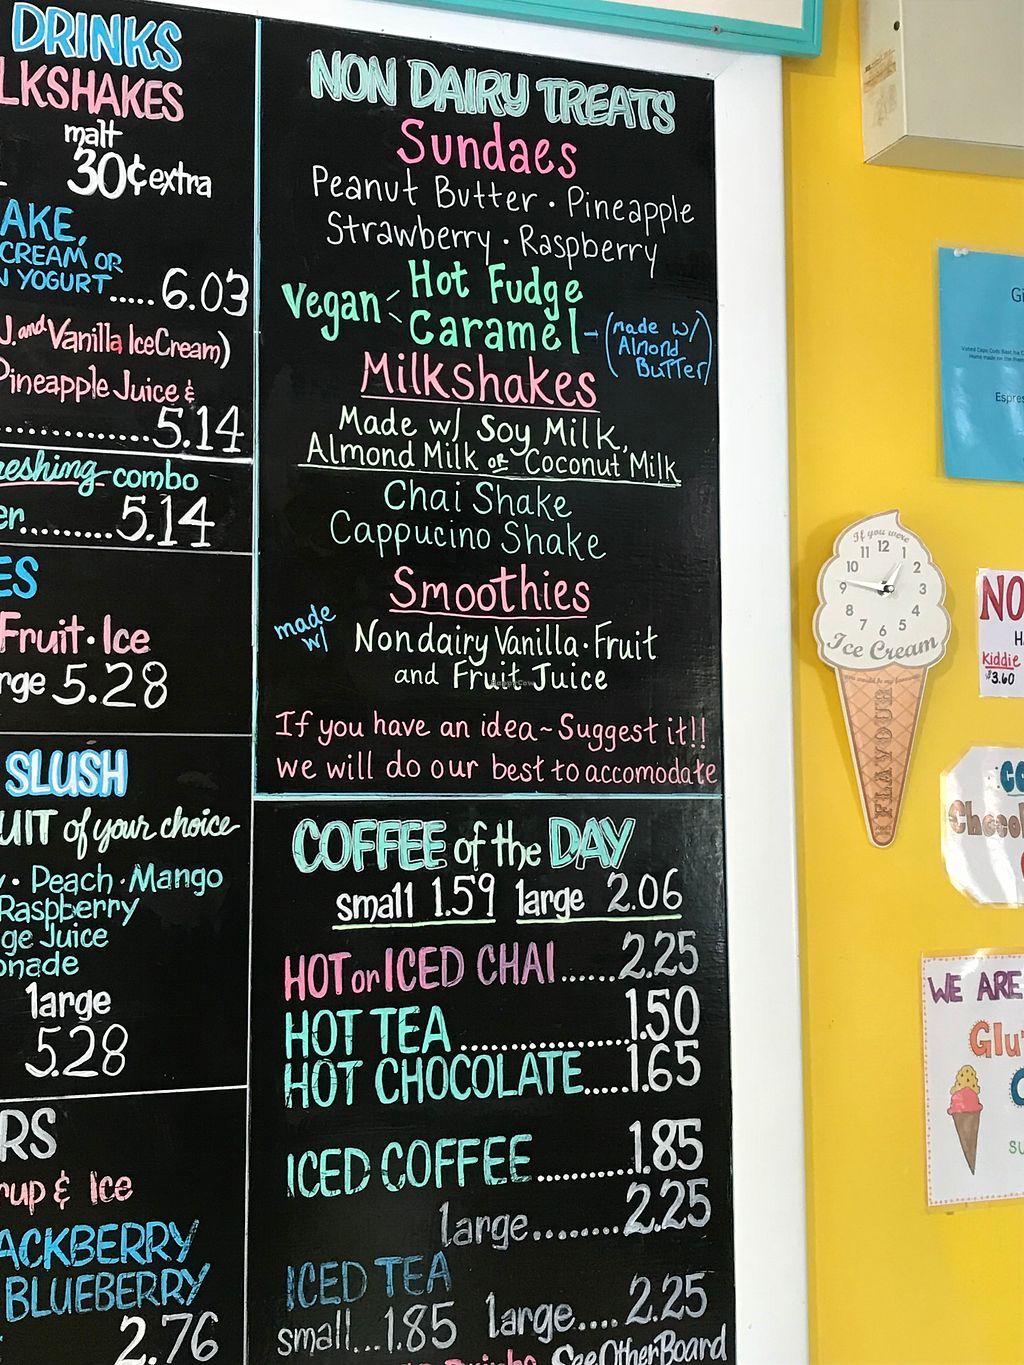 DRINKS
LKSHAKES
malt
30¢ extra
AKE,
CREAM OR
N YOGURT.....6.03
J. and Vanilla Ice Cream)
Pineapple Juice &
..............5.14
reshing combo
er.........5.14
ES
Fruit · Ice
rge 5.28
SLUSH
UIT of your choice
y · Peach · Mango
Raspberry
ge Juice
onade
large
5.28
RS
rup & Ice
ACKBERRY
BLUEBERRY
2.76
NON DAIRY TREATS
Sundaes
Peanut Butter · Pineapple
Strawberry · Raspberry
Vegan < Hot Fudge
Caramel - (made w/ Almond Butter)
Milkshakes
Made w/ Soy Milk,
Almond Milk or Coconut Milk
Chai Shake
Cappucino Shake
Smoothies
made w/
Nondairy Vanilla · Fruit
and Fruit Juice
If you have an idea ~ Suggest it!!
we will do our best to accomodate
COFFEE of the DAY
small 1.59 large 2.06
HOT or ICED CHAI......2.25
HOT TEA..................1.50
HOT CHOCOLATE.....1.65
ICED COFFEE.........1.85
large.........2.25
ICED TEA
small...1.85 large....2.25
See Other Board
If you were
11 12 1
10 2
9 3
8 4
7 6 5
Ice Cream
you would be my favourite
FLAVOUR
Gl
Espres
NO
H
Kiddie
$3.60
CO
Chocol
WE ARE
Glu
SU